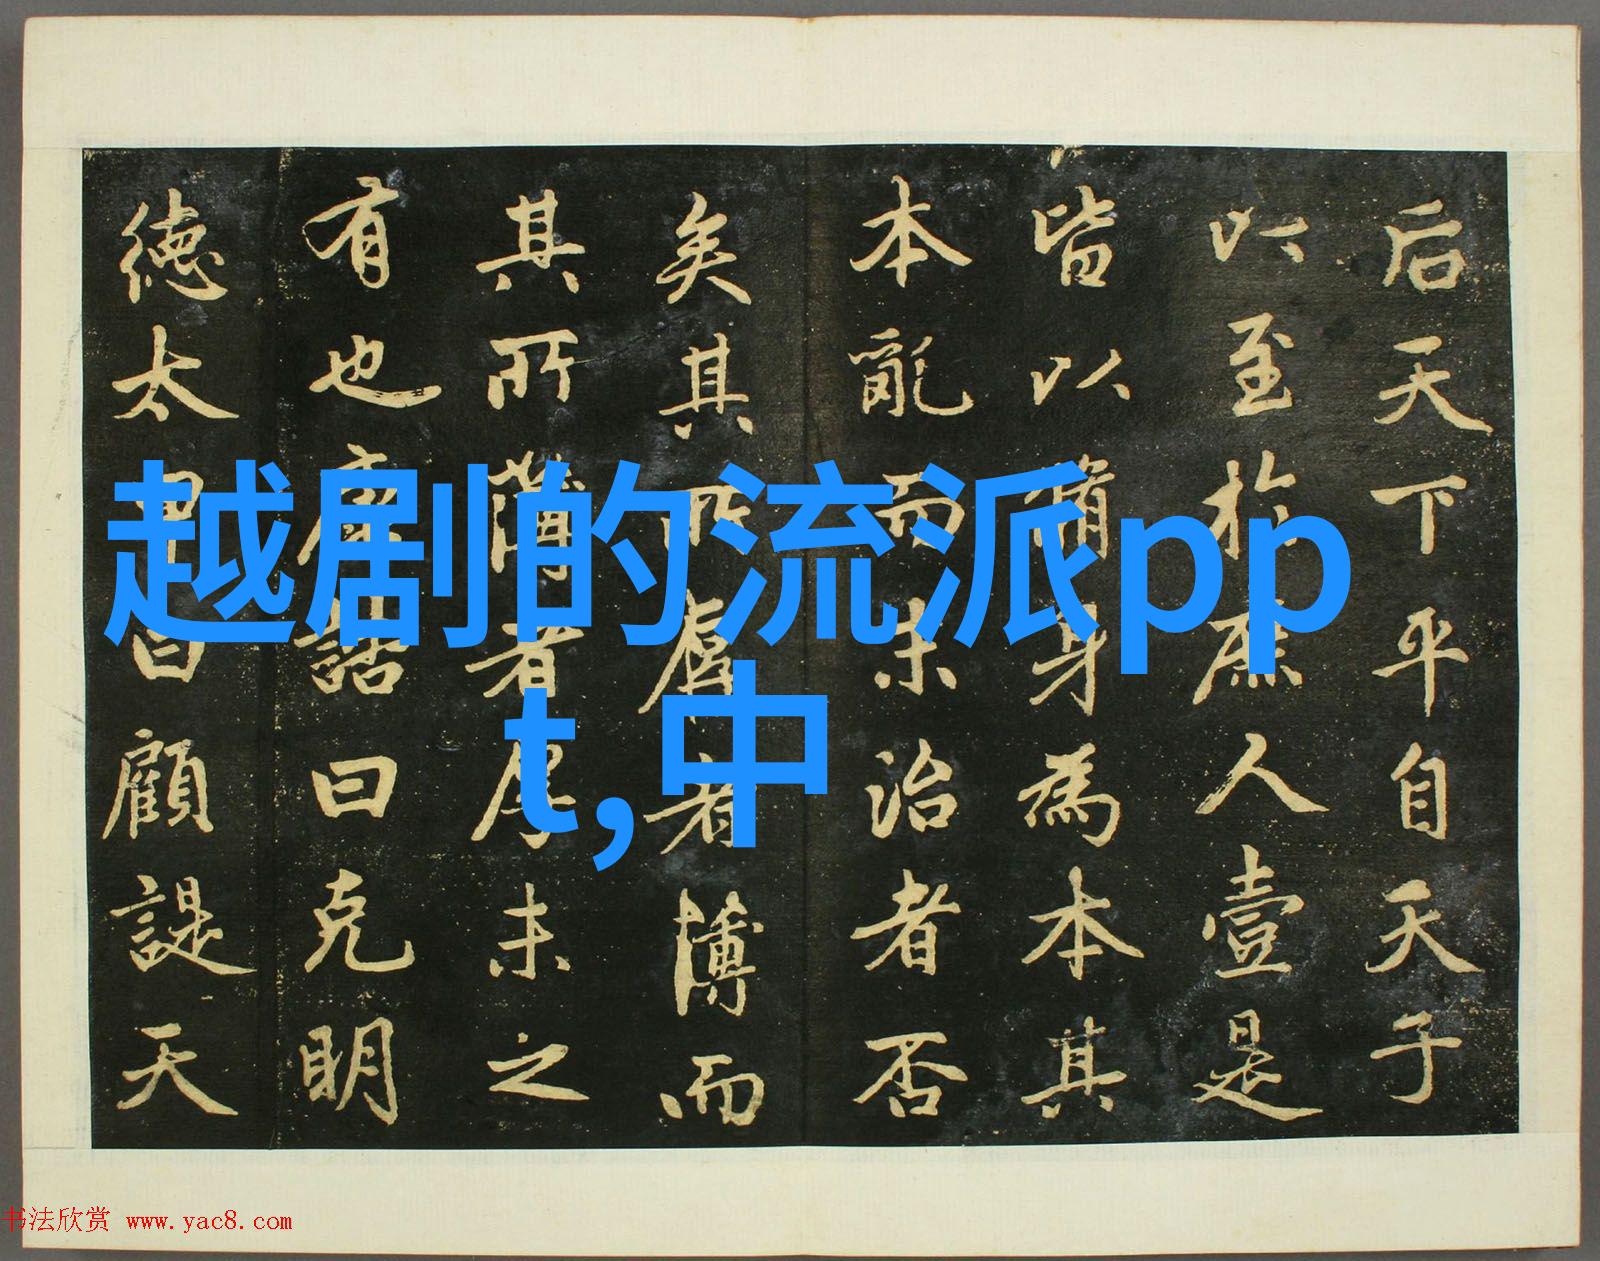 越剧的流派pp
t,中
后天下平自天子
以至於庶人壹是
皆以脩身為本其
本亂而末治者否
矣其所厚者薄而
其所薄者厚未之
有也康誥曰克明
徳太甲曰顧諟天
书法欣赏 www.yac8.com